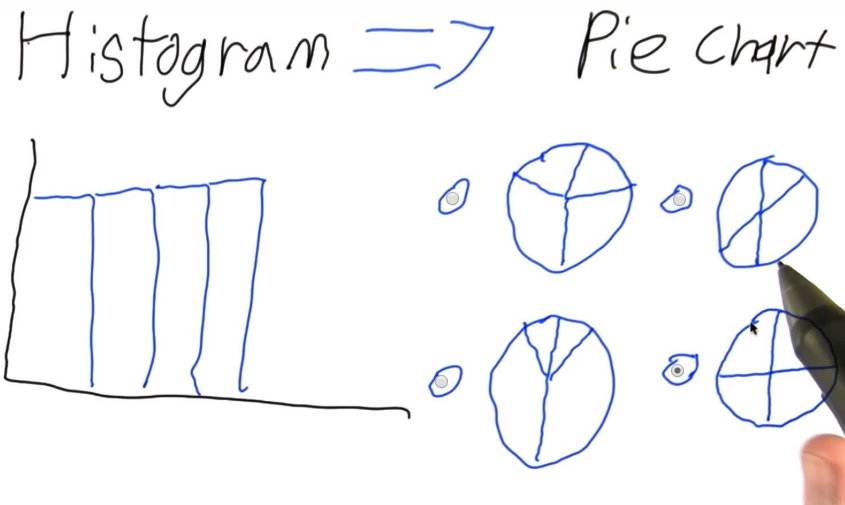 Histogram ⇒ Pie Chart